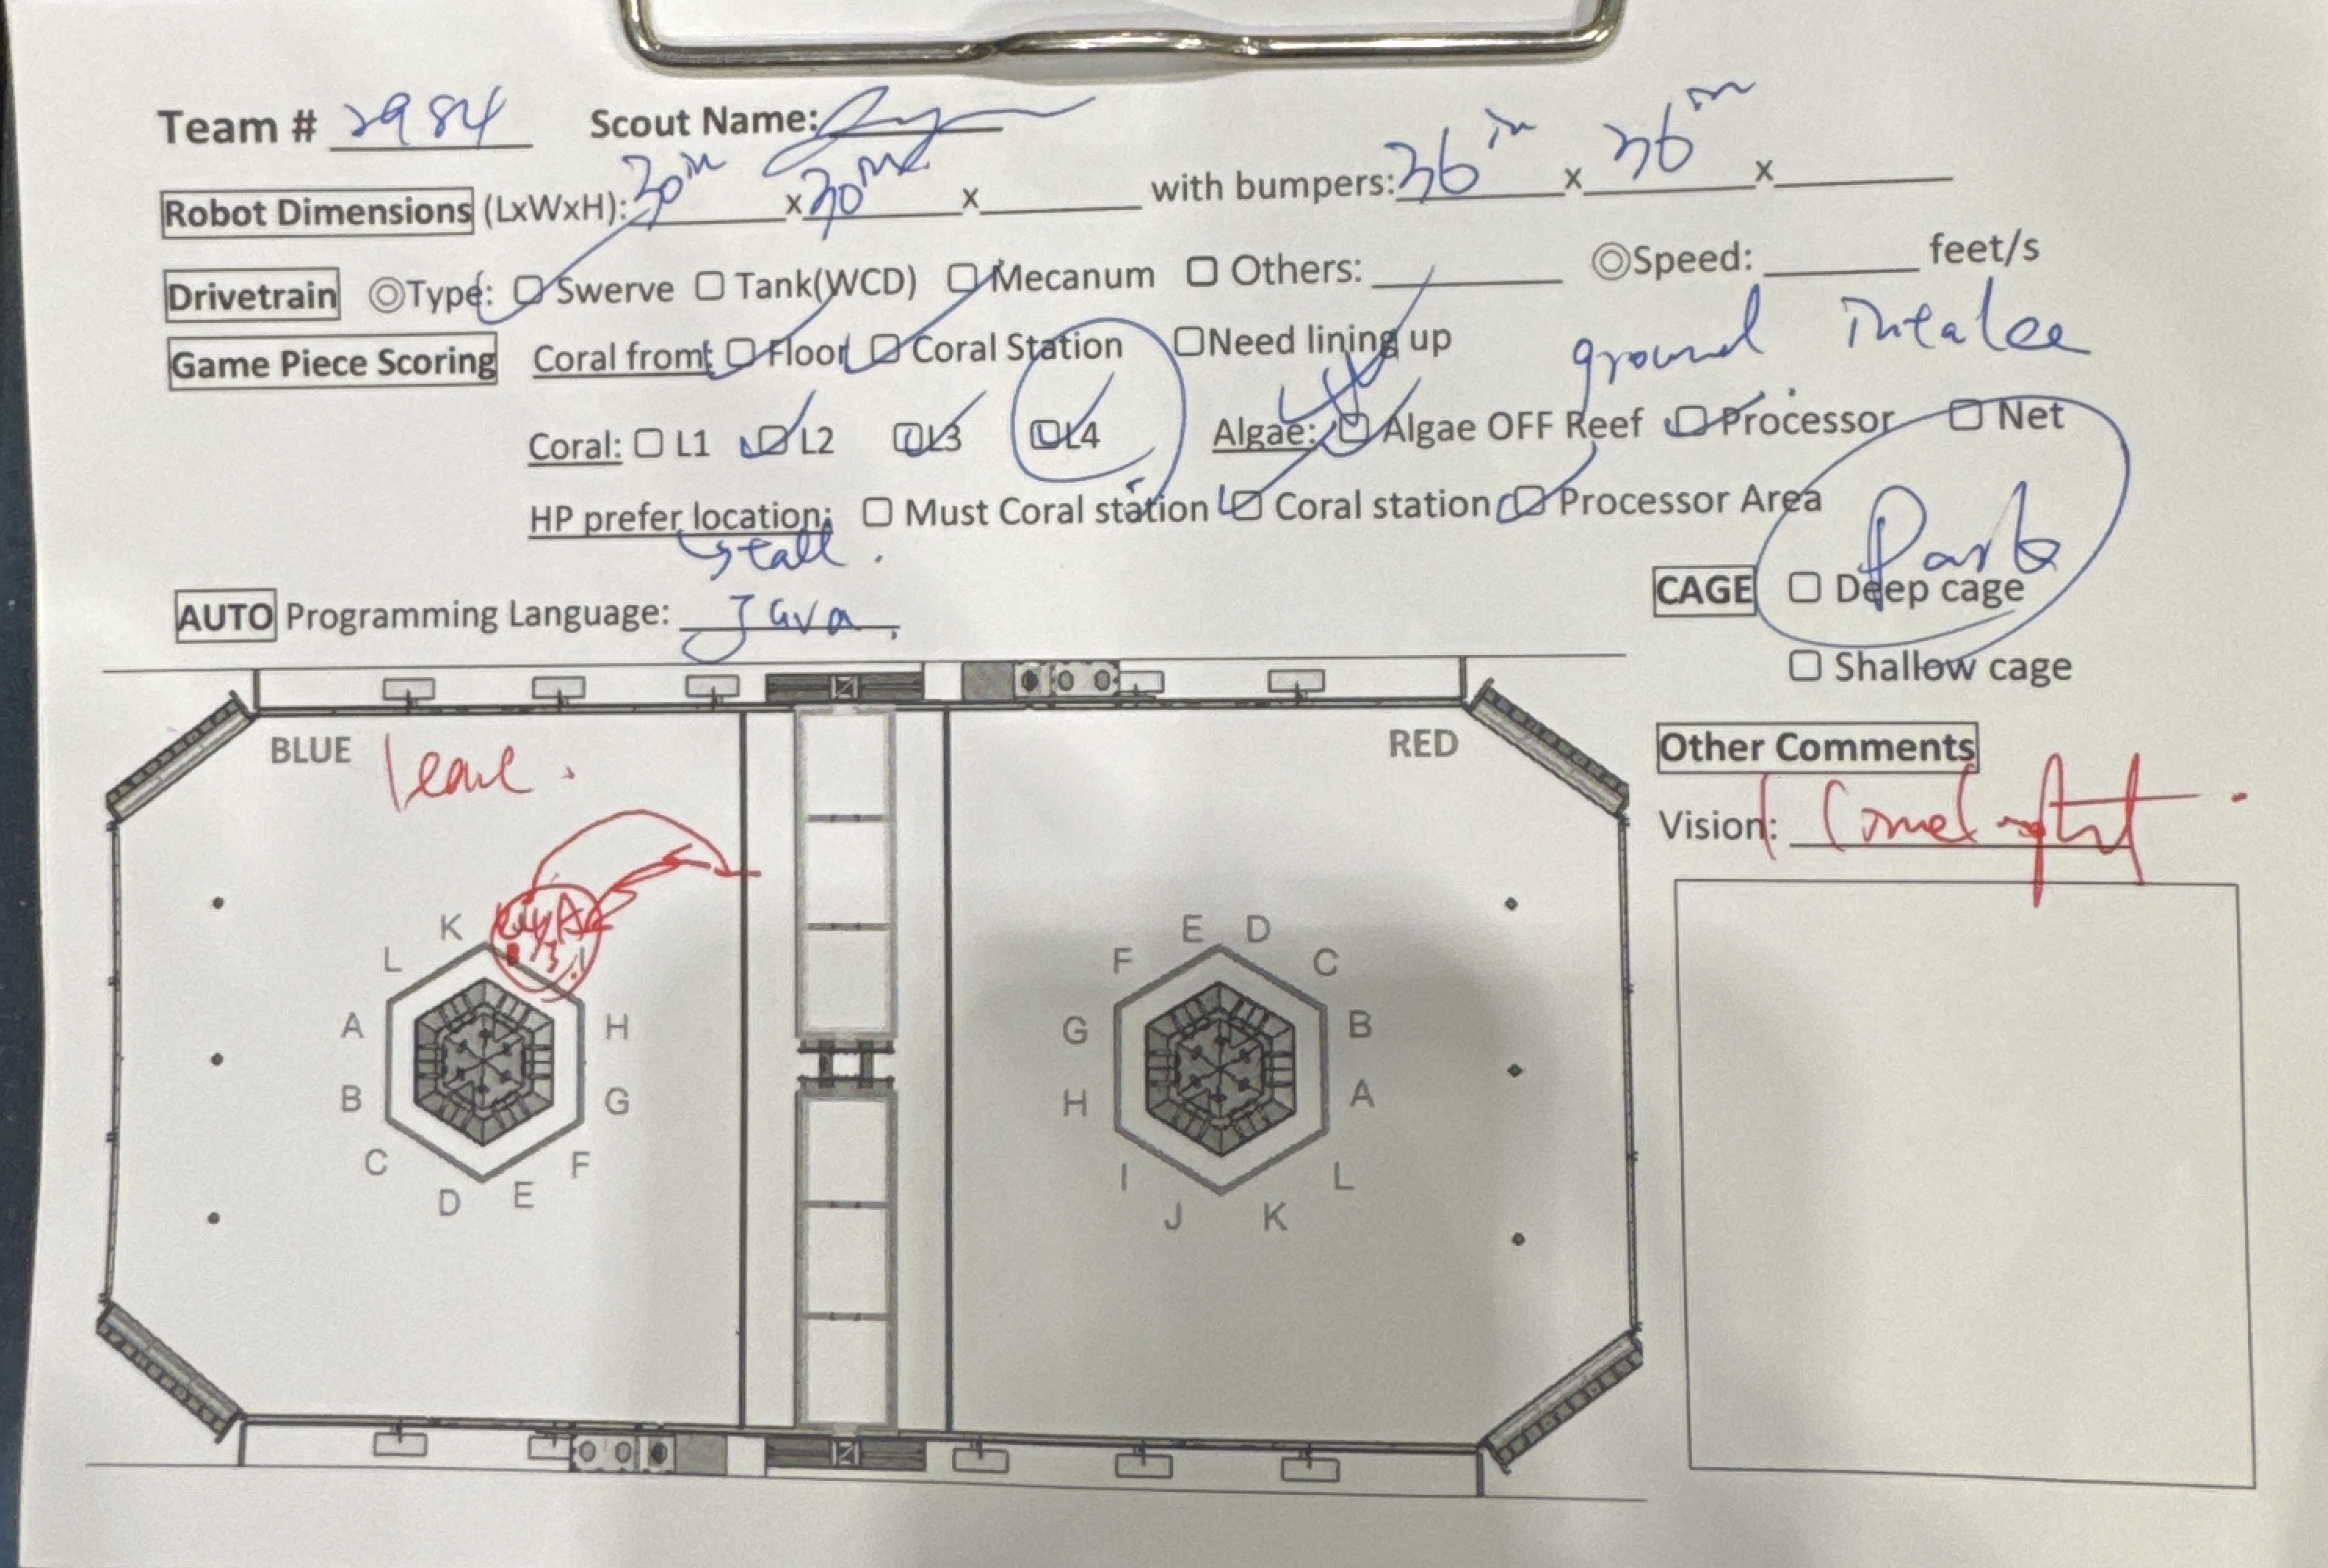 Team # 2984 Scout Name: Ryan
Robot Dimensions (LxWxH): 30in x 30in x with bumpers: 36in x 36in x
Drivetrain ◎Type: ☑ Swerve ☐ Tank(WCD) ☐ Mecanum ☐ Others: ◎Speed: feet/s
Game Piece Scoring Coral from: ☑ Floor ☑ Coral Station ☐Need lining up ground intake
Coral: ☐ L1 ☑ L2 ☑ L3 ☑ L4 Algae: ☑ Algae OFF Reef ☑ Processor ☐ Net
HP prefer location: ☐ Must Coral station ☑ Coral station ☑ Processor Area
tall Park
CAGE ☐ Deep cage
AUTO Programming Language: Java.
☐ Shallow cage
BLUE leave. RED
Other Comments
Vision:
K E D
L F C
A H G B
B G H A
C F I L
D E J K